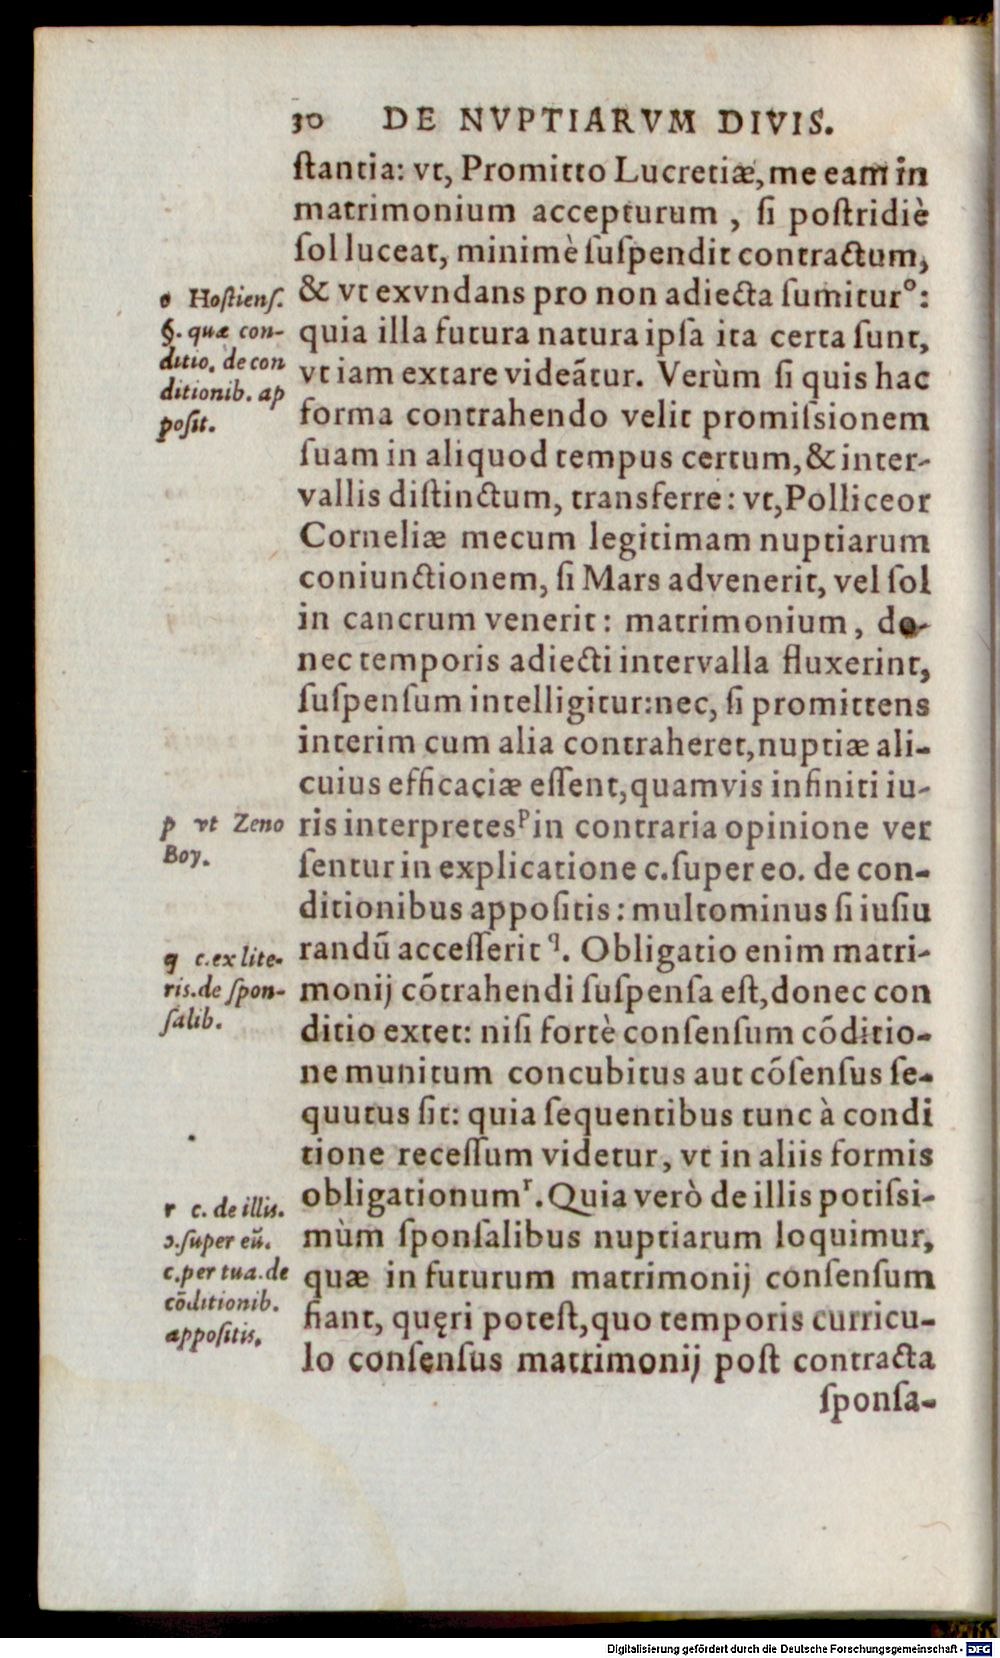 30 DE NVPTIARVM DIVIS.
ſtantia: vt, Promitto Lucretiæ, me eam in
matrimonium accepturum , ſi poſtridiè
ſol luceat, minimè ſuſpendit contractum,
& vt exvndans pro non adiecta ſumitur°:
quia illa futura natura ipſa ita certa ſunt,
vt iam extare videãtur. Verùm ſi quis hac
forma contrahendo velit promiſsionem
ſuam in aliquod tempus certum, & inter-
vallis diſtinctum, transferre: vt, Polliceor
Corneliæ mecum legitimam nuptiarum
coniunctionem, ſi Mars advenerit, vel ſol
in cancrum venerit: matrimonium, do-
nec temporis adiecti intervalla fluxerint,
ſuſpenſum intelligitur: nec, ſi promittens
interim cum alia contraheret, nuptiæ ali-
cuius efficaciæ eſſent, quamvis infiniti iu-
ris interpretesᵖ in contraria opinione ver
ſentur in explicatione c. ſuper eo. de con-
ditionibus appoſitis: multominus ſi iuſiu
randũ acceſſerit q. Obligatio enim matri-
monij cõtrahendi ſuſpenſa eſt, donec con
ditio extet: niſi fortè conſenſum cõditio-
ne munitum concubitus aut cõſenſus ſe-
quutus ſit: quia ſequentibus tunc à condi
tione receſſum videtur, vt in aliis formis
obligationumʳ. Quia verò de illis potiſsi-
mùm ſponſalibus nuptiarum loquimur,
quæ in futurum matrimonij conſenſum
fiant, quęri poteſt, quo temporis curricu-
lo conſenſus matrimonij poſt contracta
ſponſa-
o Hoſtienſ.
§. quæ con-
ditio. de con
ditionib. ap
poſit.
p vt Zeno
Boy.
q c. ex lite-
ris. de ſpon-
ſalib.
r c. de illis.
ɔ. ſuper eũ.
c. per tua. de
cõditionib.
appoſitis.
Digitalisierung gefördert durch die Deutsche Forschungsgemeinschaft - DFG